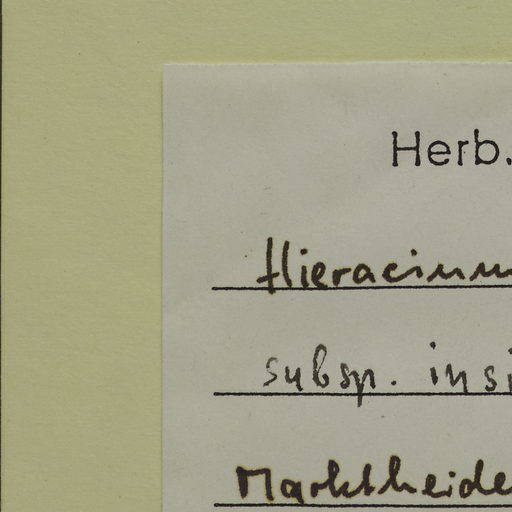 Herb.
Hieracium
subsp. insi
Marktheide